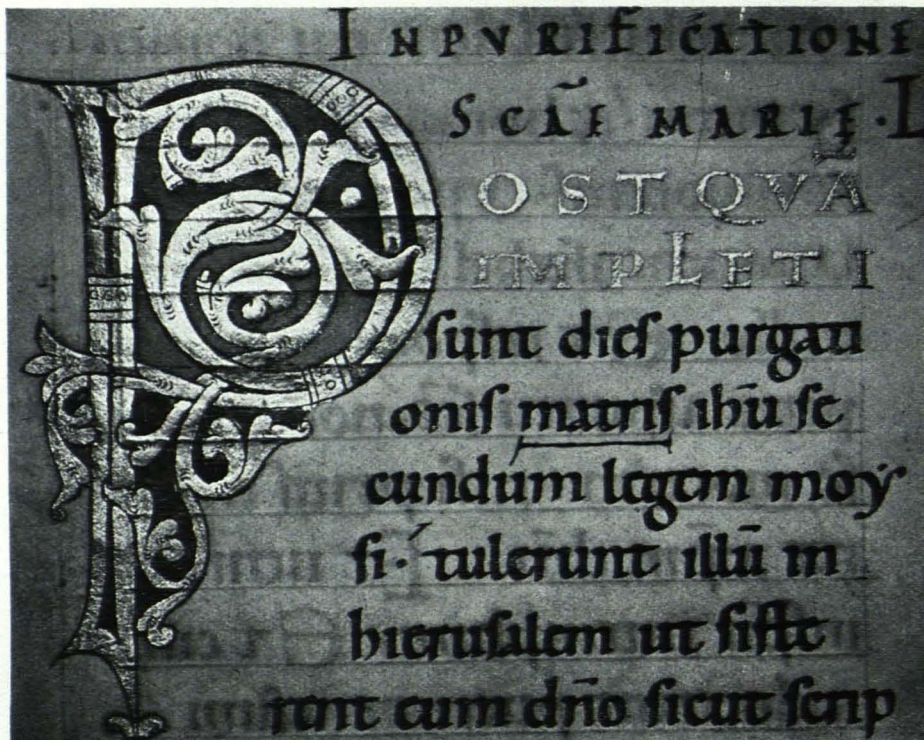 IN PVRIFICATIONE
SCĀE MARIE · L
POSTQVĀ
IMPLETI
sunt dies purgati
onis matris ihū se
cundum legem moy
si · tulerunt illū in
hierusalem ut siste
rent eum dn̄o sicut scrip